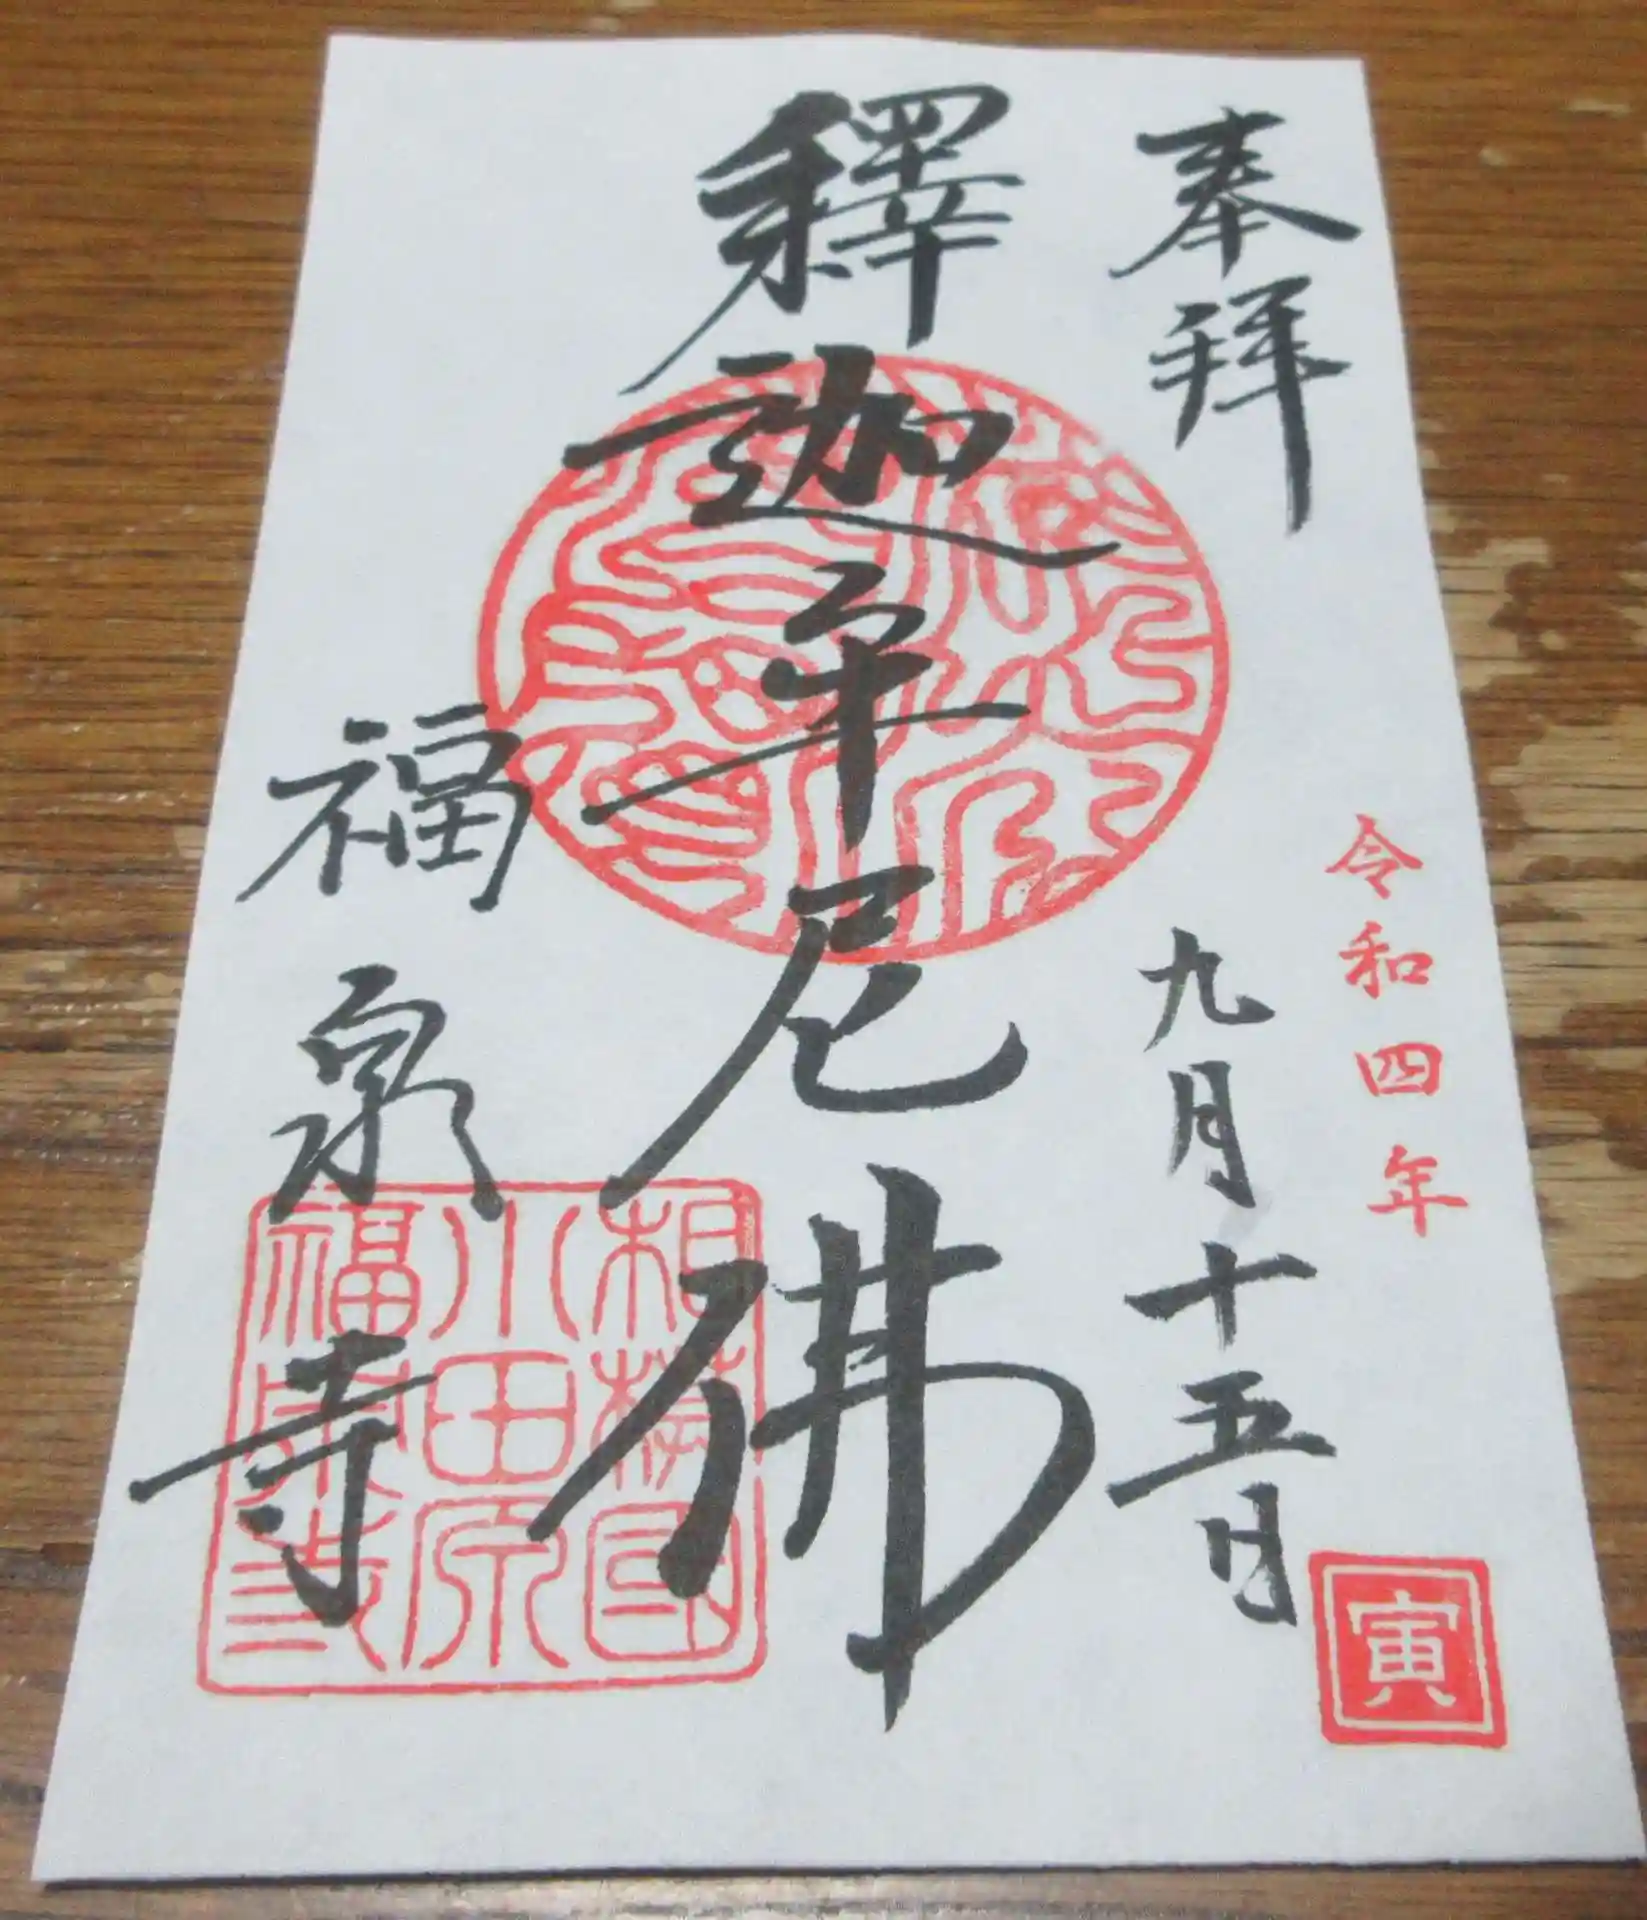 奉拝
令和四年
九月十五日
寅
釋迦牟尼佛
福泉寺
相模国
小田原
福泉寺